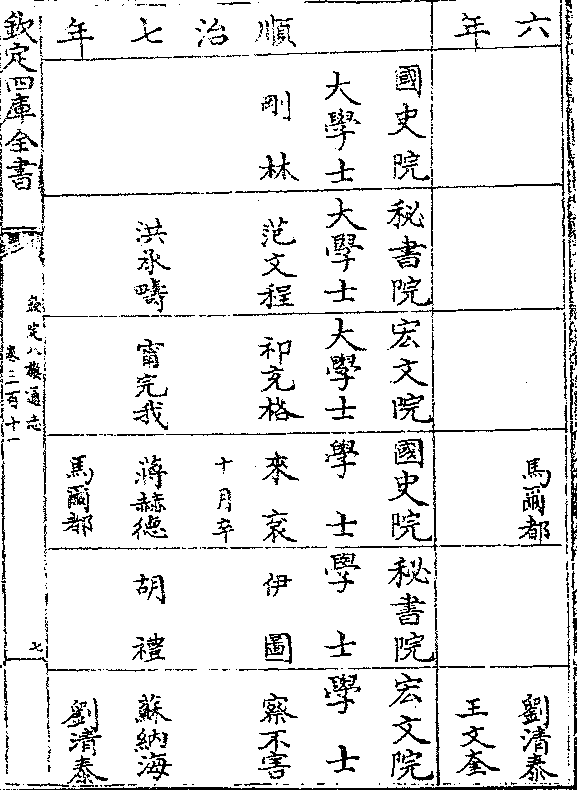 六年
馬爾都
劉清泰
王文奎
順治七年
國史院大學士
剛林
秘書院大學士
范文程
洪承疇
宏文院大學士
祁充格
甯完我
國史院學士
來袞
十月卒
蔣赫德
馬爾都
秘書院學士
伊圖
胡禮
宏文院學士
察不害
蘇納海
劉清泰
欽定四庫全書
欽定八旗通志
卷三百十一
七